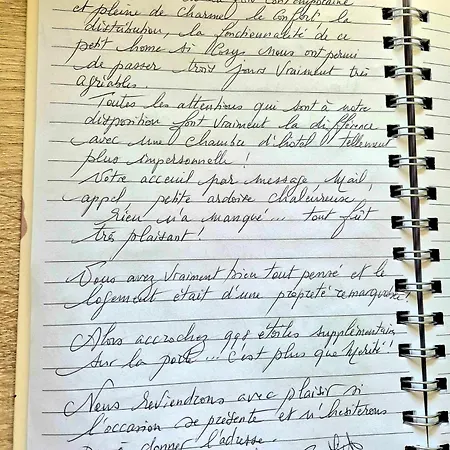 à la fois contemporaine
et pleine de charme! le confort, la
distribution, la fonctionnalité de ce
petit home si cosy nous ont permi
de passer trois jours vraiment très
agréables.
Toutes les attentions qui sont à notre
disposition font vraiment la différence
avec une chambre d'hôtel tellement
plus impersonnelle!
Votre acceuil par message, Mail,
appel, petite ardoise chaleureuse
Rien n'a manqué... tout fût
très plaisant!
Vous avez vraiment bien tout pensé et le
logement était d'une propreté remarquable!
Alors accrochez qqs étoiles supplémentaires
sur la porte... C'est plus que Mérité!
Nous reviendrons avec plaisir si
l'occasion se présente et n'hésiterons
pas à donner l'adresse.